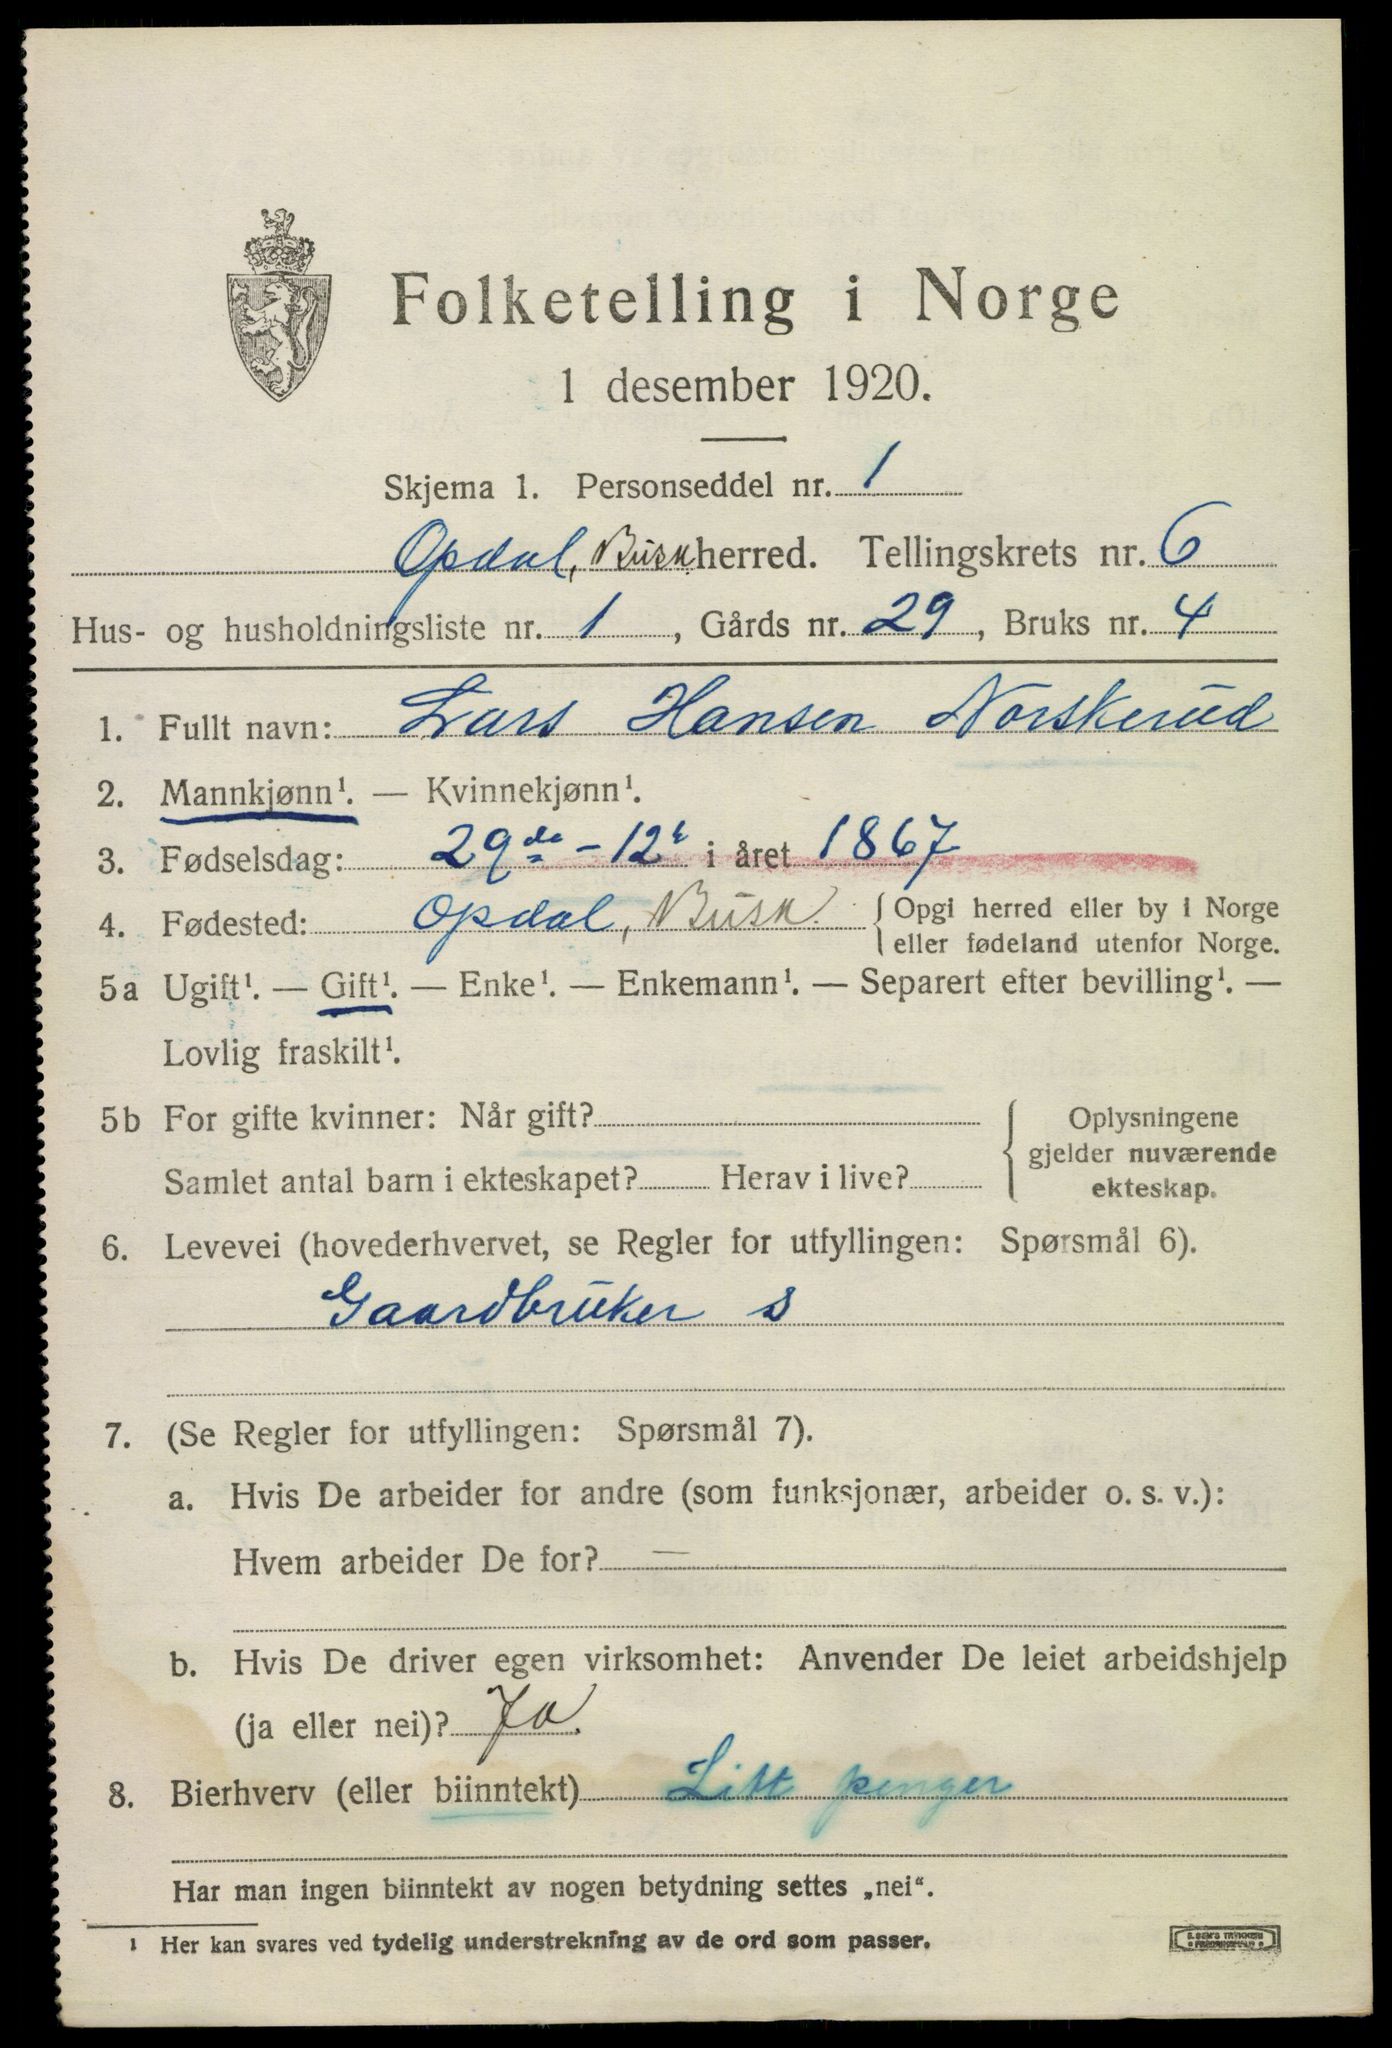 Folketelling i Norge
1 desember 1920.
Skjema 1. Personseddel nr. 1
Opdal, Busk herred. Tellingskrets nr. 6
Hus- og husholdningsliste nr. 1, Gårds nr. 29, Bruks nr. 4
1. Fullt navn: Lars Hansen Norskerud
2. Mannkjønn¹. — Kvinnekjønn¹.
3. Fødselsdag: 29de – 12te i året 1867
4. Fødested: Opdal, Busk. { Opgi herred eller by i Norge
eller fødeland utenfor Norge.
5a Ugift¹. — Gift¹. — Enke¹. — Enkemann¹. — Separert efter bevilling¹. —
Lovlig fraskilt¹.
5b For gifte kvinner: Når gift? { Oplysningene
gjelder nuværende
Samlet antal barn i ekteskapet? Herav i live? ekteskap.
6. Levevei (hovederhvervet, se Regler for utfyllingen: Spørsmål 6).
Gaardbruker s
7. (Se Regler for utfyllingen: Spørsmål 7).
a. Hvis De arbeider for andre (som funksjonær, arbeider o. s. v.):
Hvem arbeider De for? —
b. Hvis De driver egen virksomhet: Anvender De leiet arbeidshjelp
(ja eller nei)? Ja.
8. Bierhverv (eller biinntekt) Litt penger
Har man ingen biinntekt av nogen betydning settes „nei“.
¹ Her kan svares ved tydelig understrekning av de ord som passer.